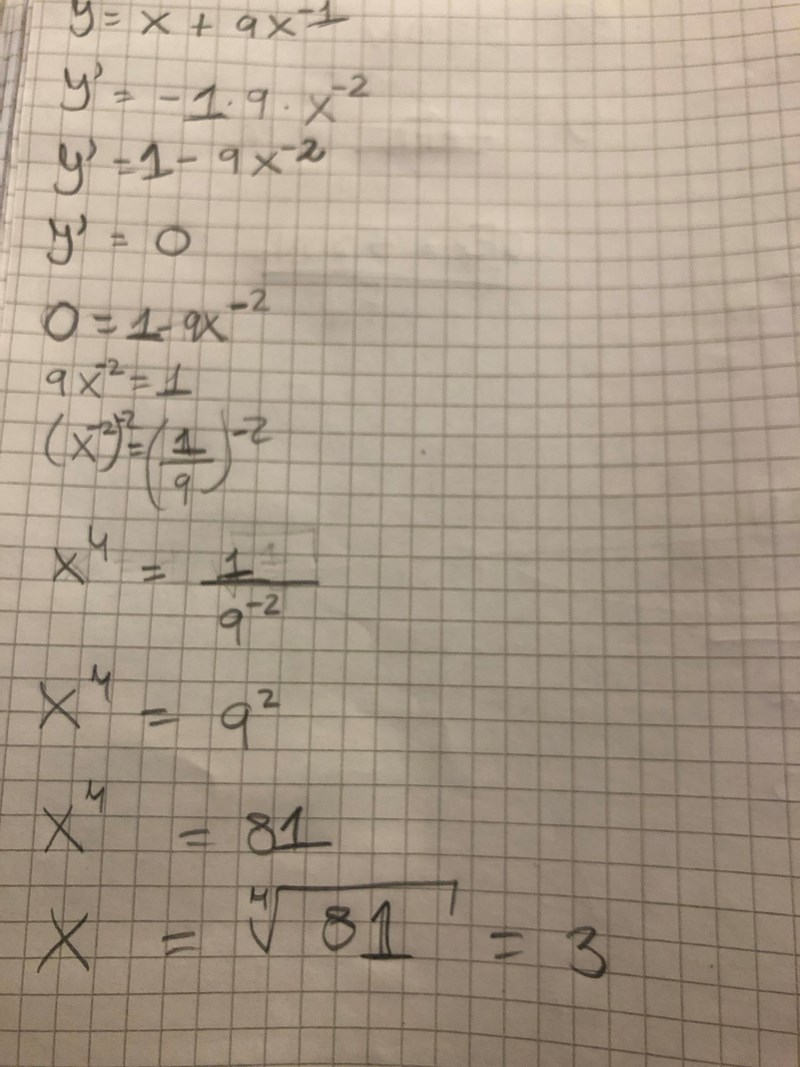 y = x + 9x⁻¹
y' = -1 · 9 · x⁻²
y' = 1 - 9x⁻²
y' = 0
0 = 1 - 9x⁻²
9x⁻² = 1
(x⁻²)⁻² = (1/9)⁻²
x⁴ = 1/9⁻²
x⁴ = 9²
x⁴ = 81
x = ⁴√81 = 3